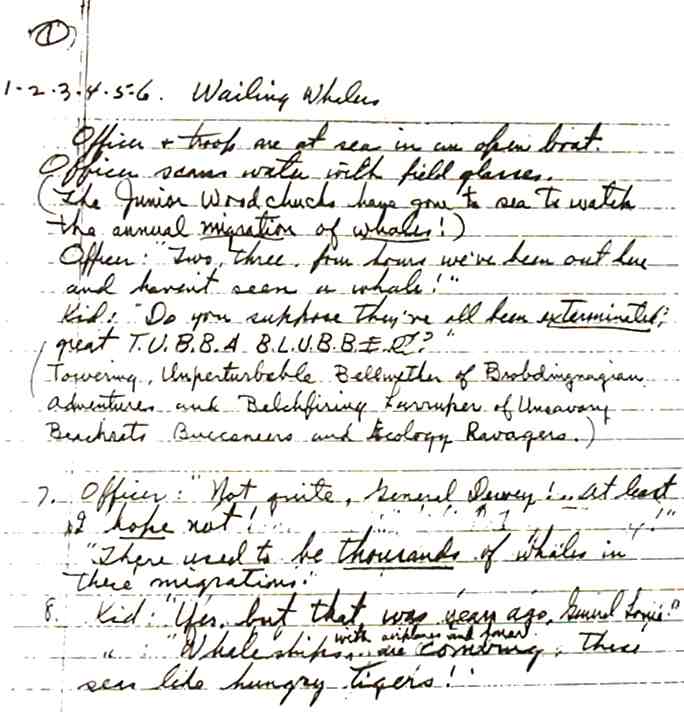 1
1-2-3-4-5-6. Wailing Whalers
Officer + troop are at sea in an open boat.
Officer scans water with field glasses.
(The Junior Woodchucks have gone to sea to watch
the annual migration of whales!)
Officer: "Two, three, four hours we've been out here
and haven't seen a whale!"
Kid: "Do you suppose they've all been exterminated,
great T.U.B.B.A B.L.U.B.B.E.R?"
(Towering, Unperturbable Bellwether of Brobdingnagian
Adventures and Belchfiring Larruper of Unsavory
Beachrats Buccaneers and Ecology Ravagers.)
7. Officer: "Not quite, General Dewey! .. At least
I hope not!
"There used to be thousands of whales in
these migrations."
8. Kid: "Yes, but that was years ago, General Louie"
" : "Whale ships with airplanes and sonar are combing these
seas like hungry tigers!"